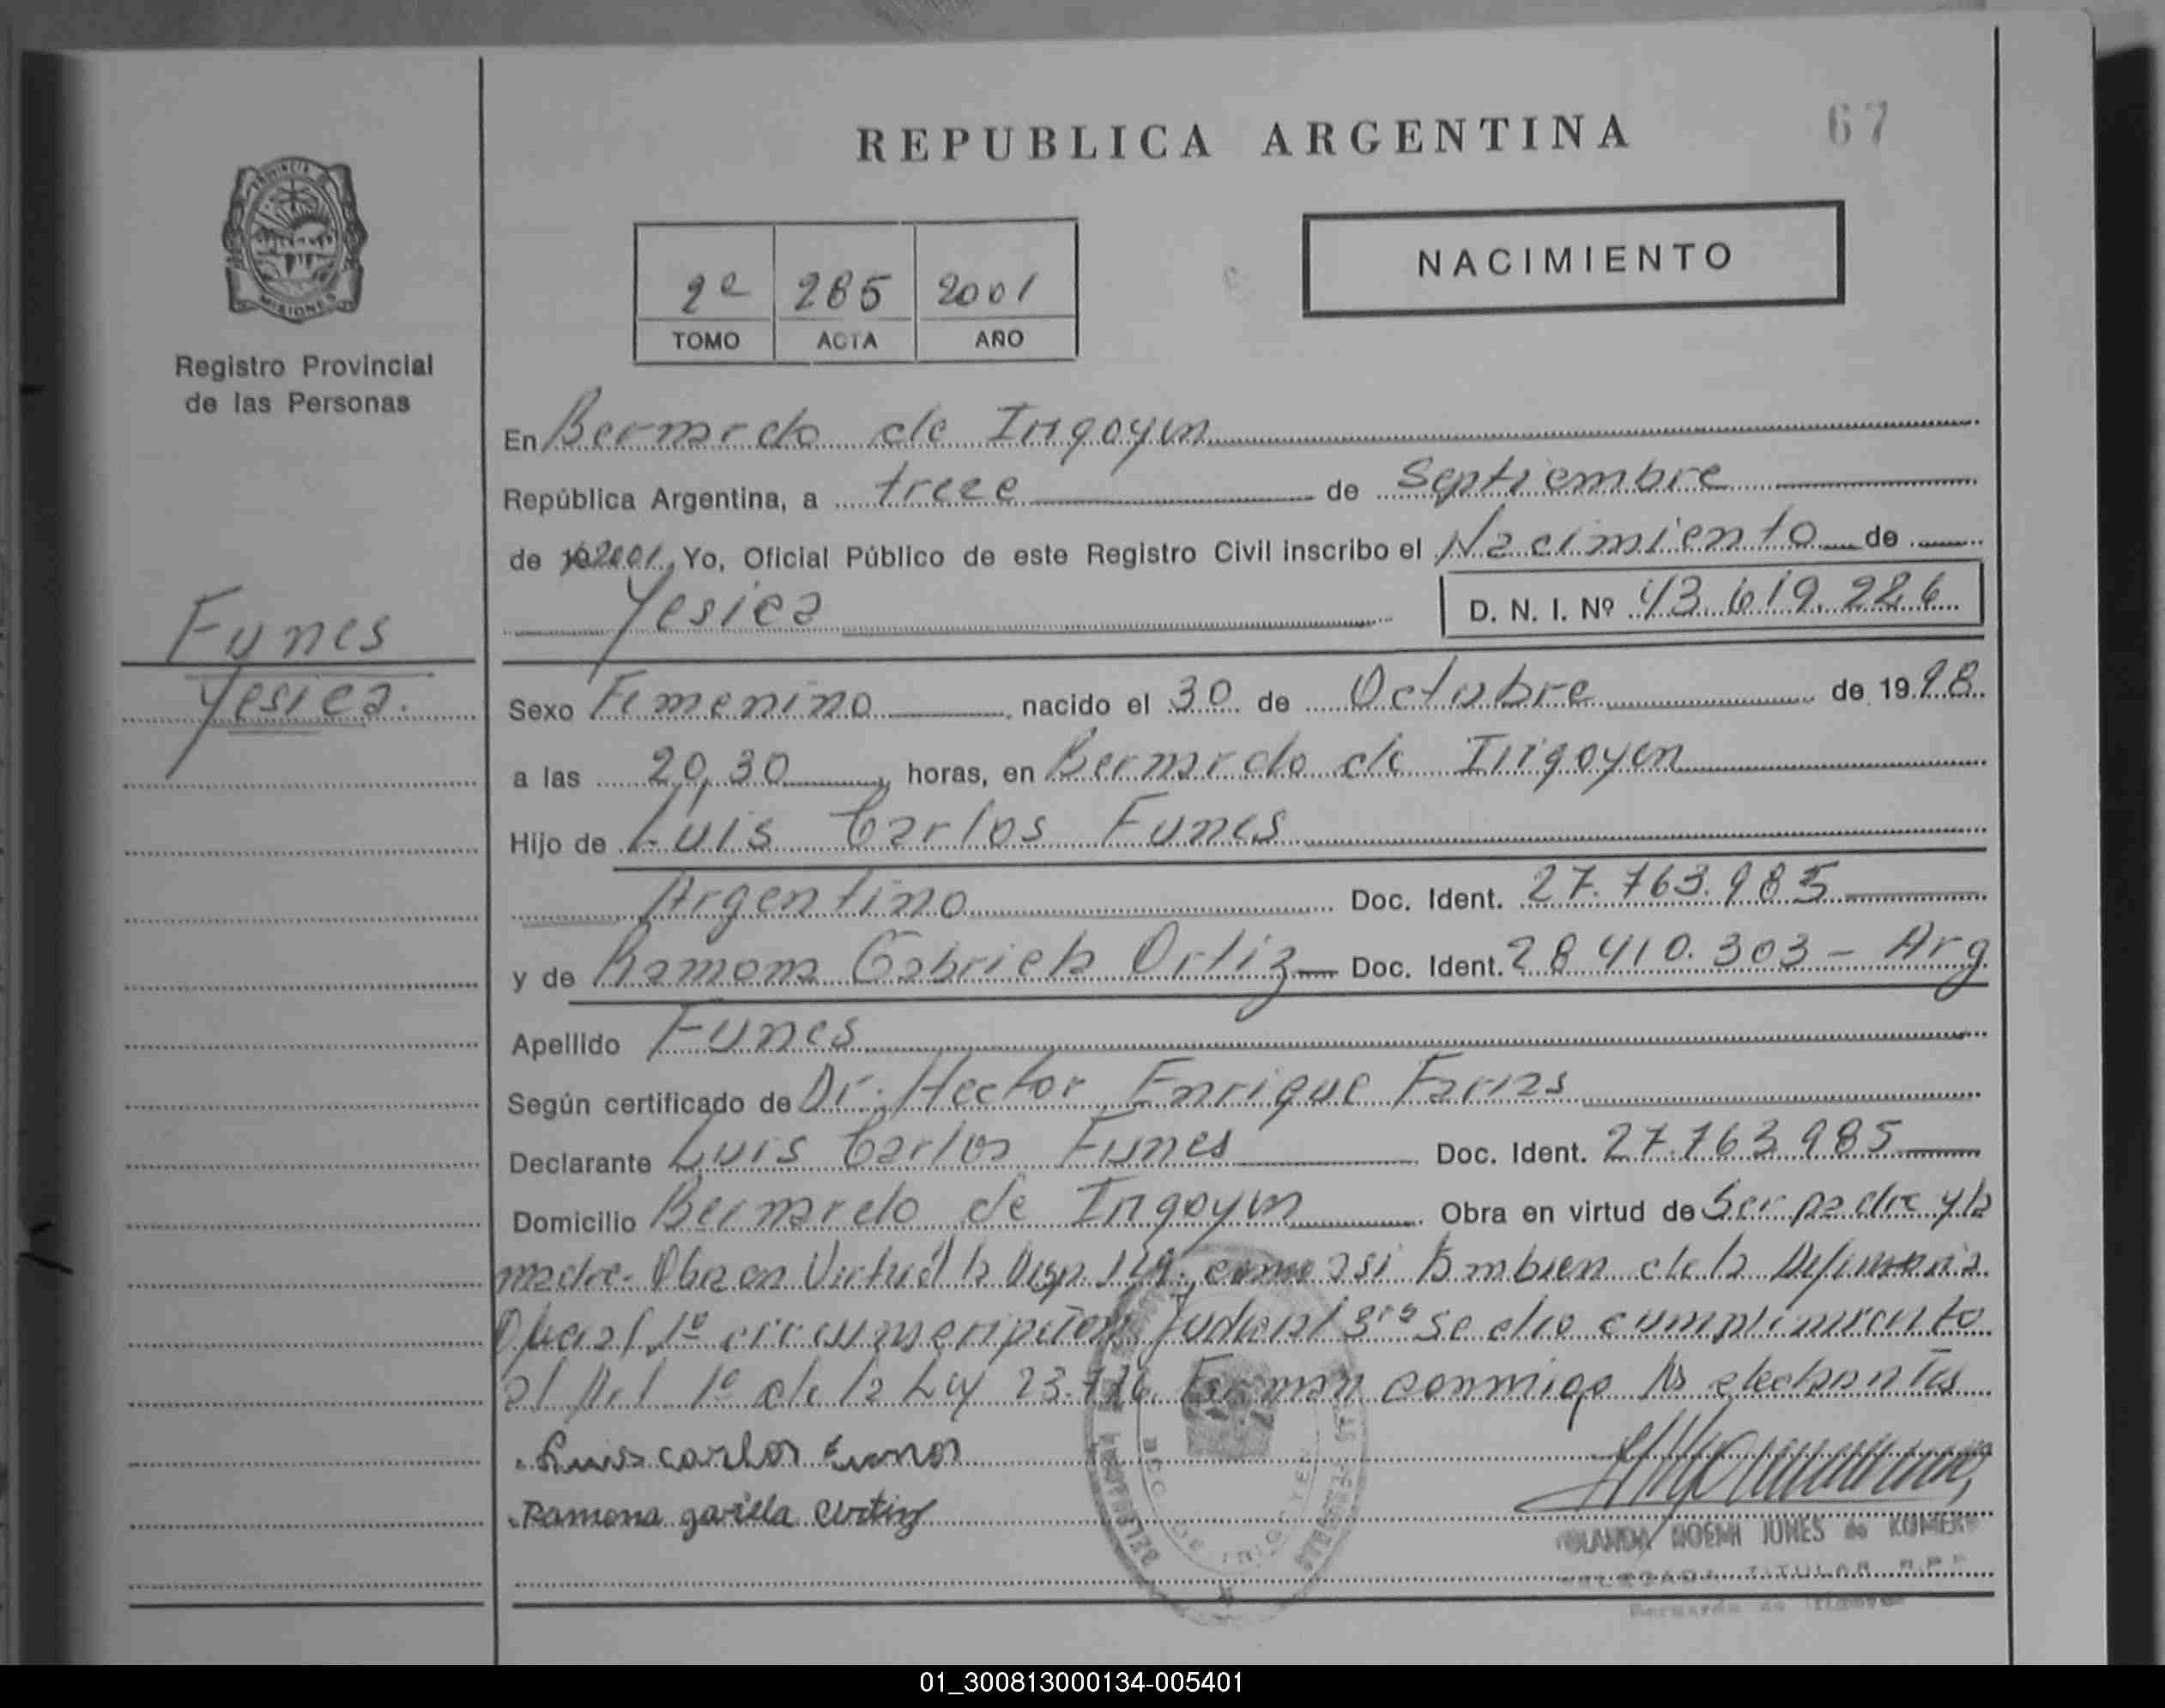 REPUBLICA ARGENTINA
67
PROVINCIA DE
MISIONES
Registro Provincial
de las Personas
2º 285 2001
TOMO ACTA AÑO
NACIMIENTO
En Bernardo de Irigoyen
República Argentina, a trece de Septiembre
de 2001, Yo, Oficial Público de este Registro Civil inscribo el Nacimiento de
Yesica D. N. I. Nº 43.619.226
Funes
Yesica.
Sexo Femenino nacido el 30 de Octubre de 1998
a las 20,30 horas, en Bernardo de Irigoyen
Hijo de Luis Carlos Funes
Argentino Doc. Ident. 27.763.985
y de Ramona Gabriela Ortiz Doc. Ident. 28 410.303 - Arg
Apellido Funes
Según certificado de Dr. Hector Enrique Farias
Declarante Luis Carlos Funes Doc. Ident. 27.763.985
Domicilio Bernardo de Irigoyen Obra en virtud de Ser padre y la
madre. Obra en Virtud la Disp. como asi tambien de la Defensoria
Oficial 1º circunscripcion Judicial se dio cumplimiento
al Art 1º de la Ley 23.776. Firman conmigo los declarantes
Luis carlos Funes
Ramona gariela Ortiz
NOEMI JUNES de
TITULAR R.P.P
Bernardo de Irigoyen
01_300813000134-005401